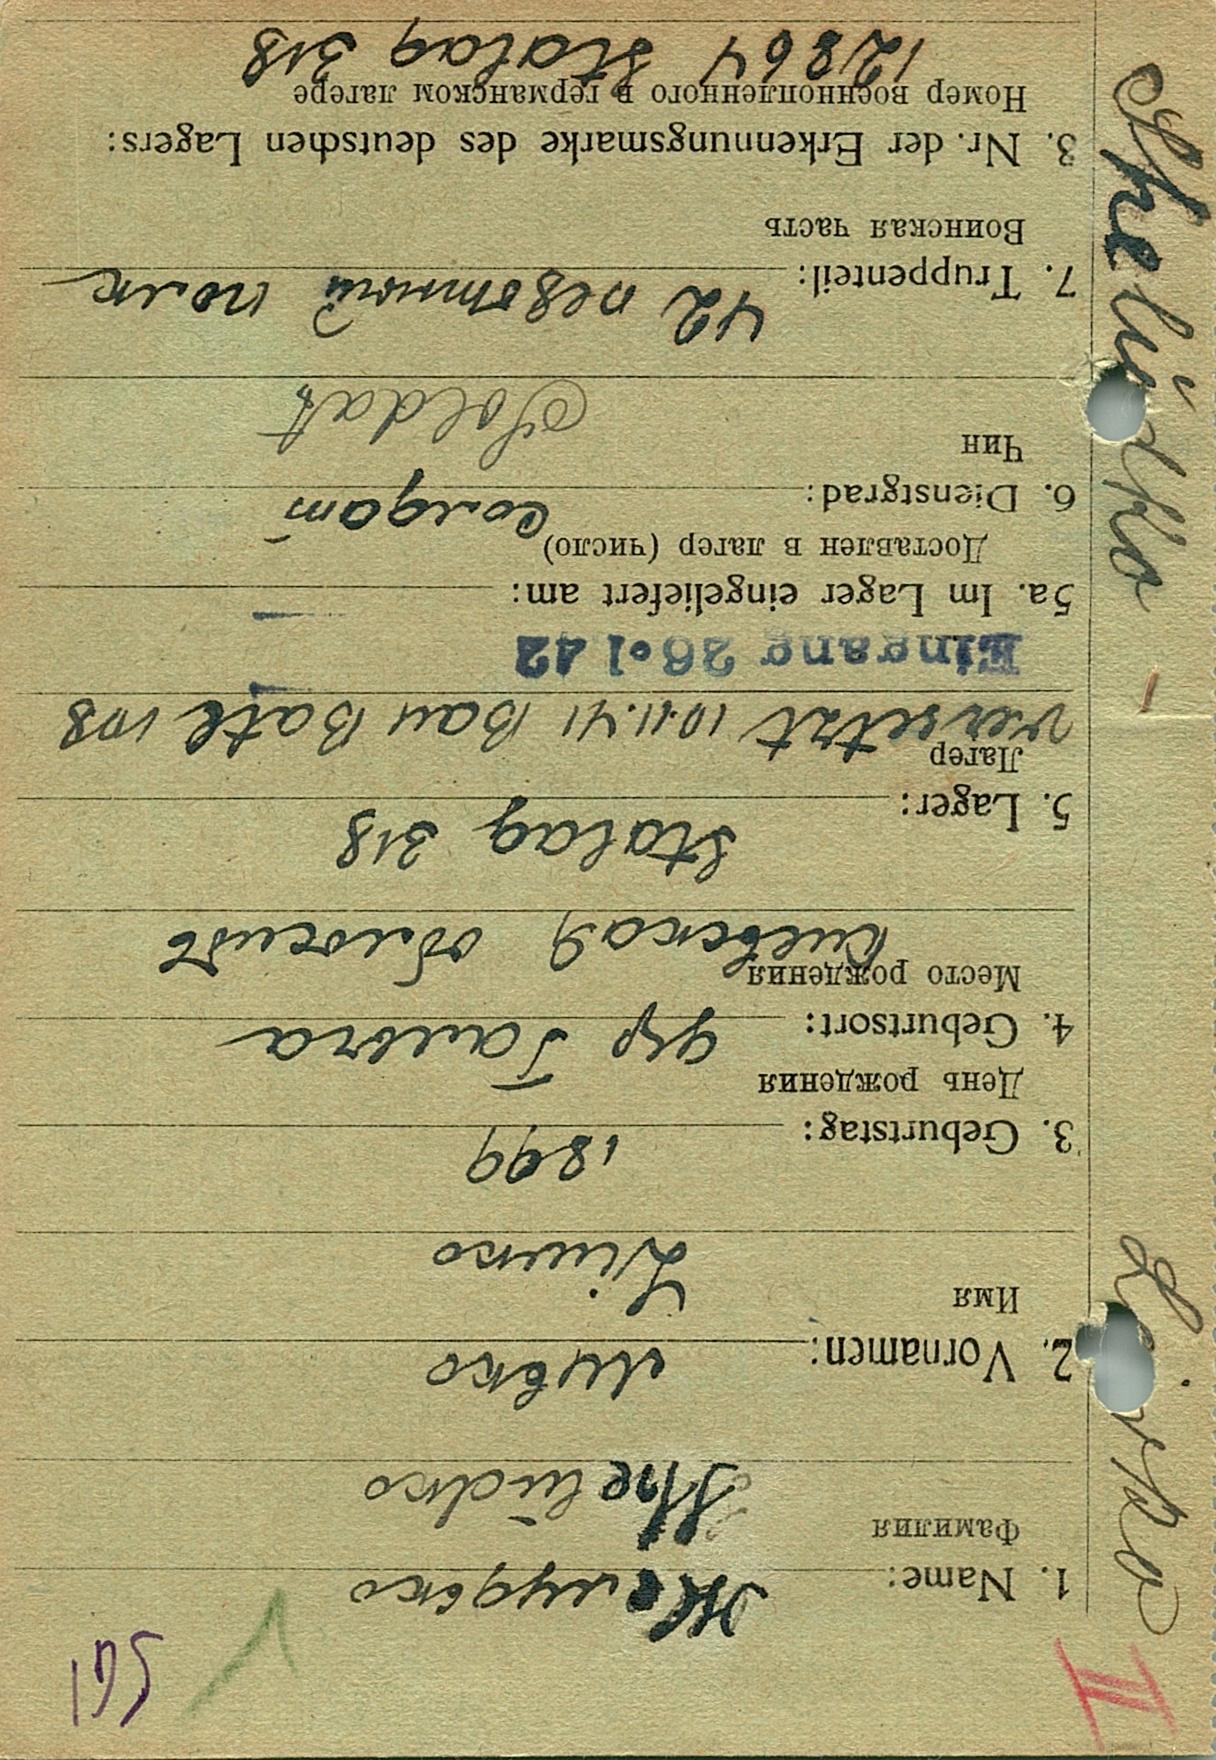 561
II
1. Name: Желудько
Фамилия
Sheludko
2. Vornamen: Лувко
Имя
Liwko
3. Geburtstag: 1899
День рождения
4. Geburtsort: дер
Место рождения
Киевская область
5. Lager: Stalag 318
Лагер
versetzt 10.11.41 Bau Batl 108
Eingang 26.1 42
5a. Im Lager eingeliefert am:
Доставлен в лагер (число)
6. Dienstgrad: Солдат
Чин
Soldat
7. Truppenteil: 42 пехотный полк
Воинская часть
3. Nr. der Erkennungsmarke des deutschen Lagers:
Номер военнопленного в германском лагере
12864 Stalag 318
Sheludko - Liwko